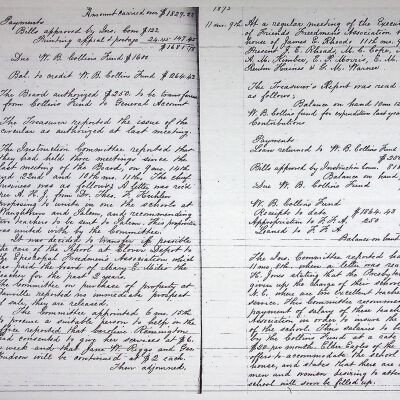 Amount carried over $1829.28
Payments
Bills approved by Ins. Com $122
Printing appeal & postage 26.45 148.45
$1681.78
Due W. B. Collins Fund $1600
Bal. to credit W. B. Collins Fund $264.43
The Board authorized $250. to be transferred
from Collins Fund to General Account
The Treasurer reported the issue of the
circular as authorized at last meeting.
The Instruction Committee reported that
they had held three meetings since the
last meeting of the Board, on 9 mo. 14th
and 22nd and 10th mo. 11th. The chief
business was as follows: A letter was rec'd
from Dr. Theo. F.
proposing to unite in one the schools at
and Salem, and recommending
two teachers to be sent to Salem. This proposition
was united with by the Committee.
It was decided to transfer if possible
the care of the School at Clover Depot to
the Episcopal Freedmen's Association which
has paid the board of Mary E. Miles the
teacher for the past 2 years.
The Committee on purchase of property at
Danville reported no immediate prospect
of only, they are released.
The Committee appointed 6 mo. 15th
to procure a suitable person to help in the
office reported that Caroline Remington
had consented to give her services at $6.
a week and that Jane W. Riggs and Geo.
will be continued at $2 each.
Then adjourned.
1873
11 mo. 9th At a regular meeting of the Executive
of Friends Freedmen's Association
house of James E. Rhoads, 11th mo.
Present J. E. Rhoads, M. C. Cope,
A. M. Kimber, E. P. Morris, E. M.
Reuben Haines & C. M. Warner.
The Treasurer's Report was read
as follows:
Balance on hand 10 mo. 12
W. B. Collins fund for expenditure last year
Contributions
Payments
Loan returned to W. B. Collins Fund
$250
Bills approved by Instruction Com.
Balance on hand
Due W. B. Collins
W. B. Collins Fund
Receipts to date $1864.43
Appropriation to F. F. A. 250
Loaned to F. F. A
Balance on hand
The Ins. Committee reported
11 mo. 8th when a letter was read
stating that the Presbyterians
given up the charge of their school
N. C. where are excellent teachers
service. This Committee recommended
payment of salary of these teachers
Association in order to insure the
of the school. Their salaries to be
by the Collins Fund at a rate
$30. per month. Elder Eagles of the
offers to accommodate the school
house, and states that there are
men and women desiring to attend
school will soon be filled up.